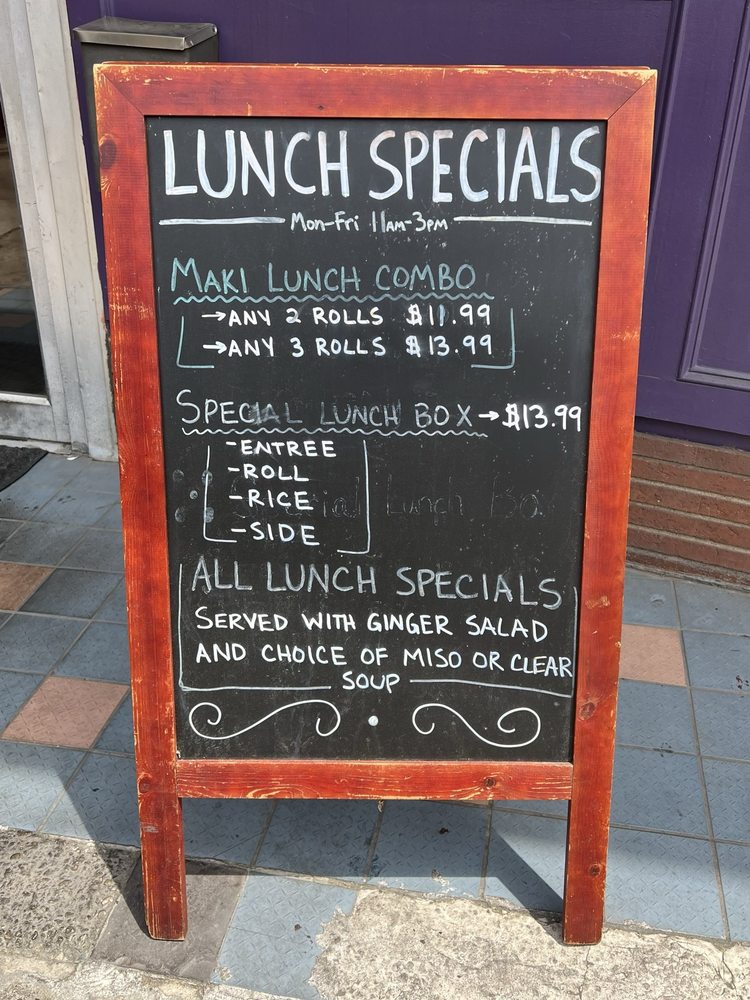 LUNCH SPECIALS
Mon-Fri 11AM-3PM
MAKI LUNCH COMBO
→ANY 2 ROLLS $11.99
→ANY 3 ROLLS $13.99
SPECIAL LUNCH BOX→$13.99
-ENTREE
-ROLL
-RICE
-SIDE
ALL LUNCH SPECIALS
SERVED WITH GINGER SALAD
AND CHOICE OF MISO OR CLEAR
SOUP